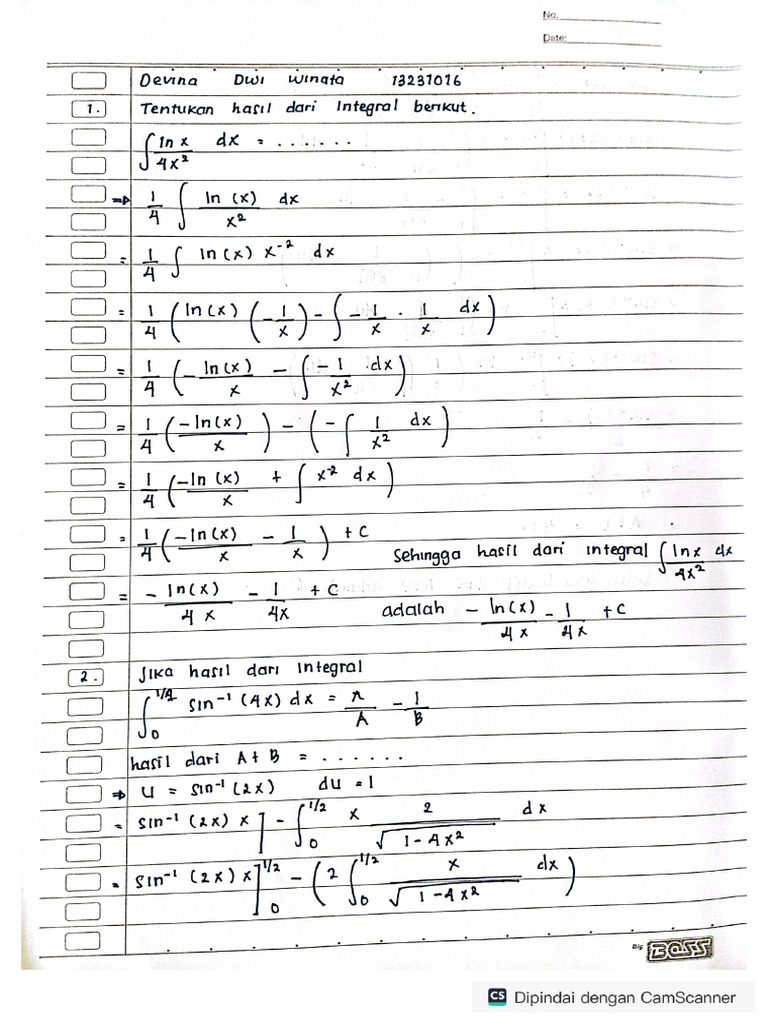 No.
Date:
Devina Dwi Winata 13231016
1. Tentukan hasil dari Integral berikut.
∫ ln x / 4x² dx = .......
⇒ 1/4 ∫ ln (x) / x² dx
= 1/4 ∫ ln (x) x⁻² dx
= 1/4 ( ln (x) ( - 1/x ) - ∫ - 1/x . 1/x dx )
= 1/4 ( - ln (x) / x - ∫ -1/x² dx )
= 1/4 ( -ln (x) / x ) - ( - ∫ 1/x² dx )
= 1/4 ( -ln (x) / x + ∫ x⁻² dx )
= 1/4 ( -ln (x) / x - 1/x ) + C
Sehingga hasil dari integral ∫ ln x / 4x² dx
= - ln (x) / 4x - 1/4x + C
adalah - ln (x) / 4x - 1/4x + C
2. Jika hasil dari Integral
∫₀ sin⁻¹ (4x) dx = π/A - 1/B
hasil dari A + B = ......
⇒ u = sin⁻¹ (2x) du = 1
= sin⁻¹ (2x) x ] - ∫₀^1/2 x 2 / √(1 - 4x²) dx
= sin⁻¹ (2x) x ]₀^1/2 - ( 2 ∫₀^1/2 x / √(1 - 4x²) dx )
BOSS
CS Dipindai dengan CamScanner